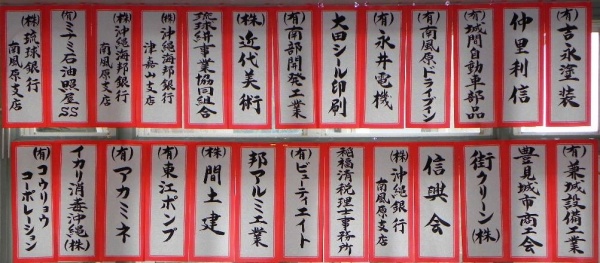 (有)吉永塗装
仲里利信
(有)城間自動車部品
(有)南風原ドライブイン
(有)永井電機
大田シール印刷
(有)南部開発工業
(株)近代美術
琉球絣事業協同組合
(株)沖縄海邦銀行
津嘉山支店
(株)沖縄海邦銀行
南風原支店
(有)ミナミ石油照屋SS
(株)琉球銀行
南風原支店
(有)兼城設備工業
豊見城市商工会
街クリーン(株)
信興会
(株)沖縄銀行
南風原支店
稲福清税理士事務所
(有)ビューティエイト
邦アルミ工業
(株)間土建
(有)東江ポンプ
(有)アカミネ
イカリ消毒沖縄(株)
(有)コウリョウ
コーポレーション